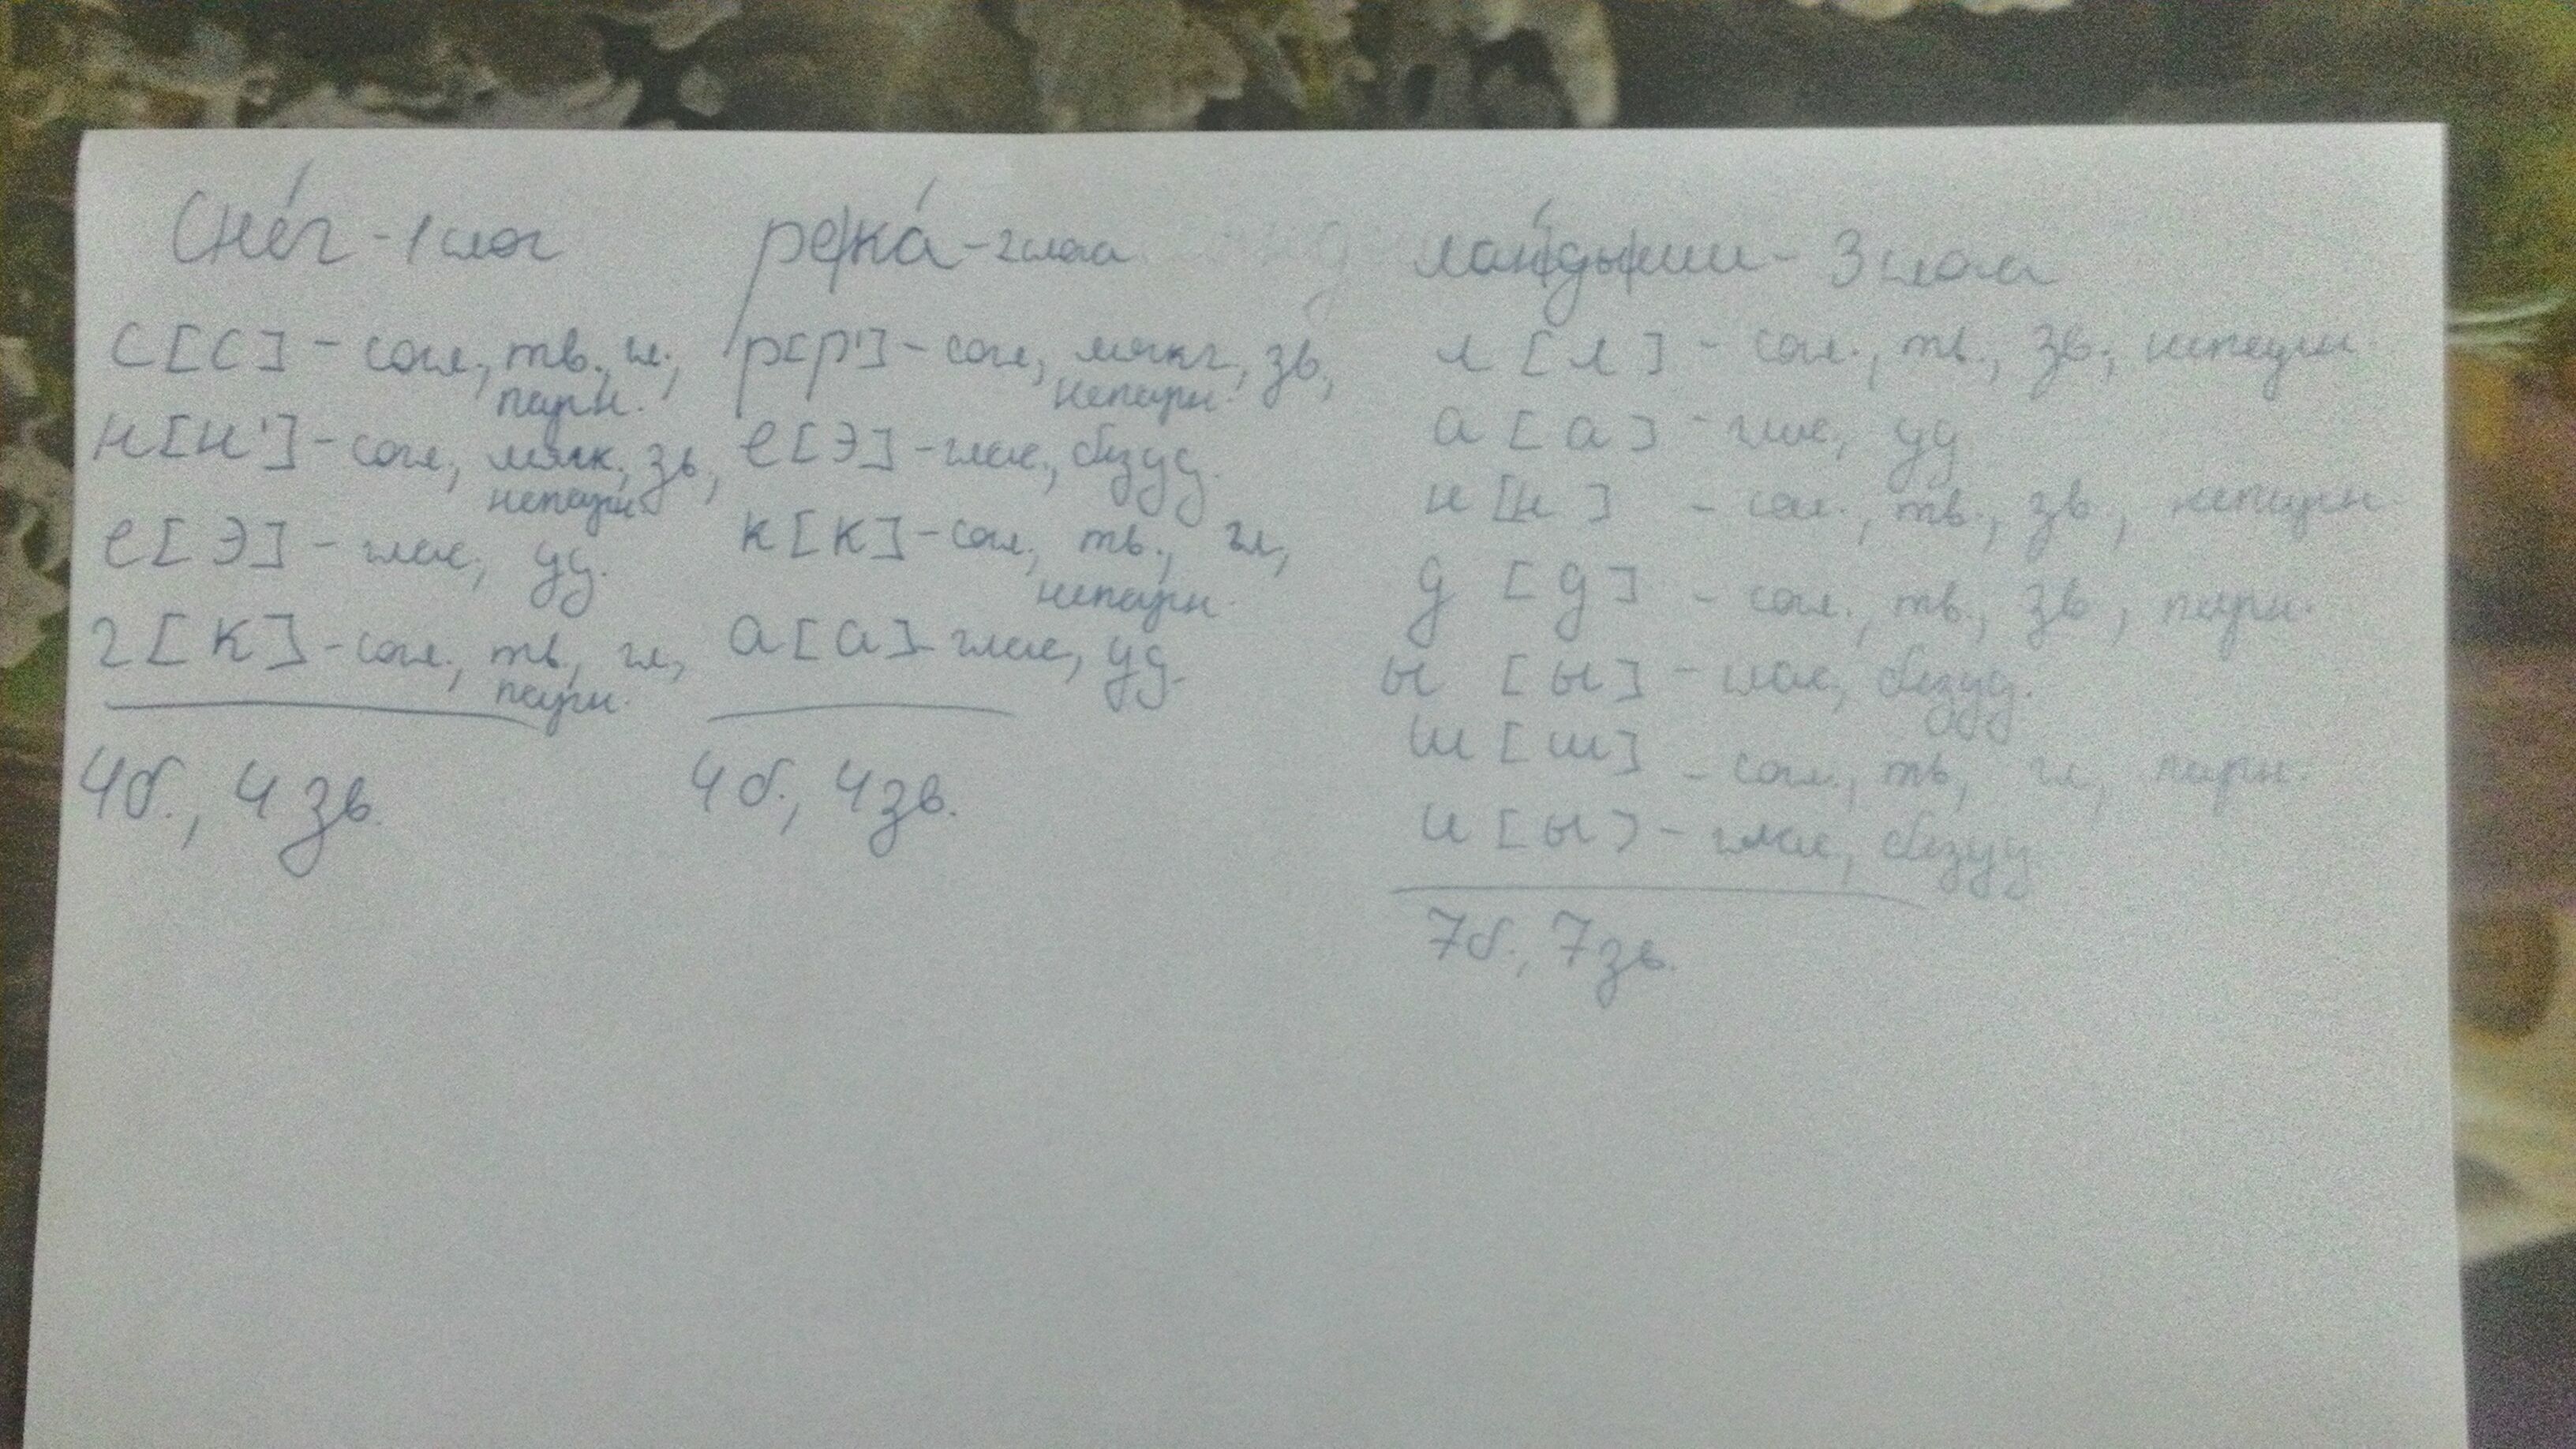 Снег - 1 слог
с [с] - согл., тв., гл.,
парн.
н [н'] - согл., мягк., зв.,
непарн.
е [э] - глас., уд.
г [к] - согл., тв., гл.,
парн.
4 б., 4 зв.
ре|ка́ - 2 слога
р [р'] - согл., мягкг, зв.,
непарн.
е [э] - глас., безуд.
к [к] - согл., тв., гл.,
непарн.
а [а] - глас., уд.
4 б., 4 зв.
ла́н|ды|ши - 3 слога
л [л] - согл., тв., зв., непарн.
а [а] - глас, уд
н [н] - согл., тв., зв., непарн.
д [д] - согл., тв., зв., парн.
ы [ы] - глас., безуд.
ш [ш] - согл., тв., гл., парн.
и [ы] - глас., безуд
7 б., 7 зв.